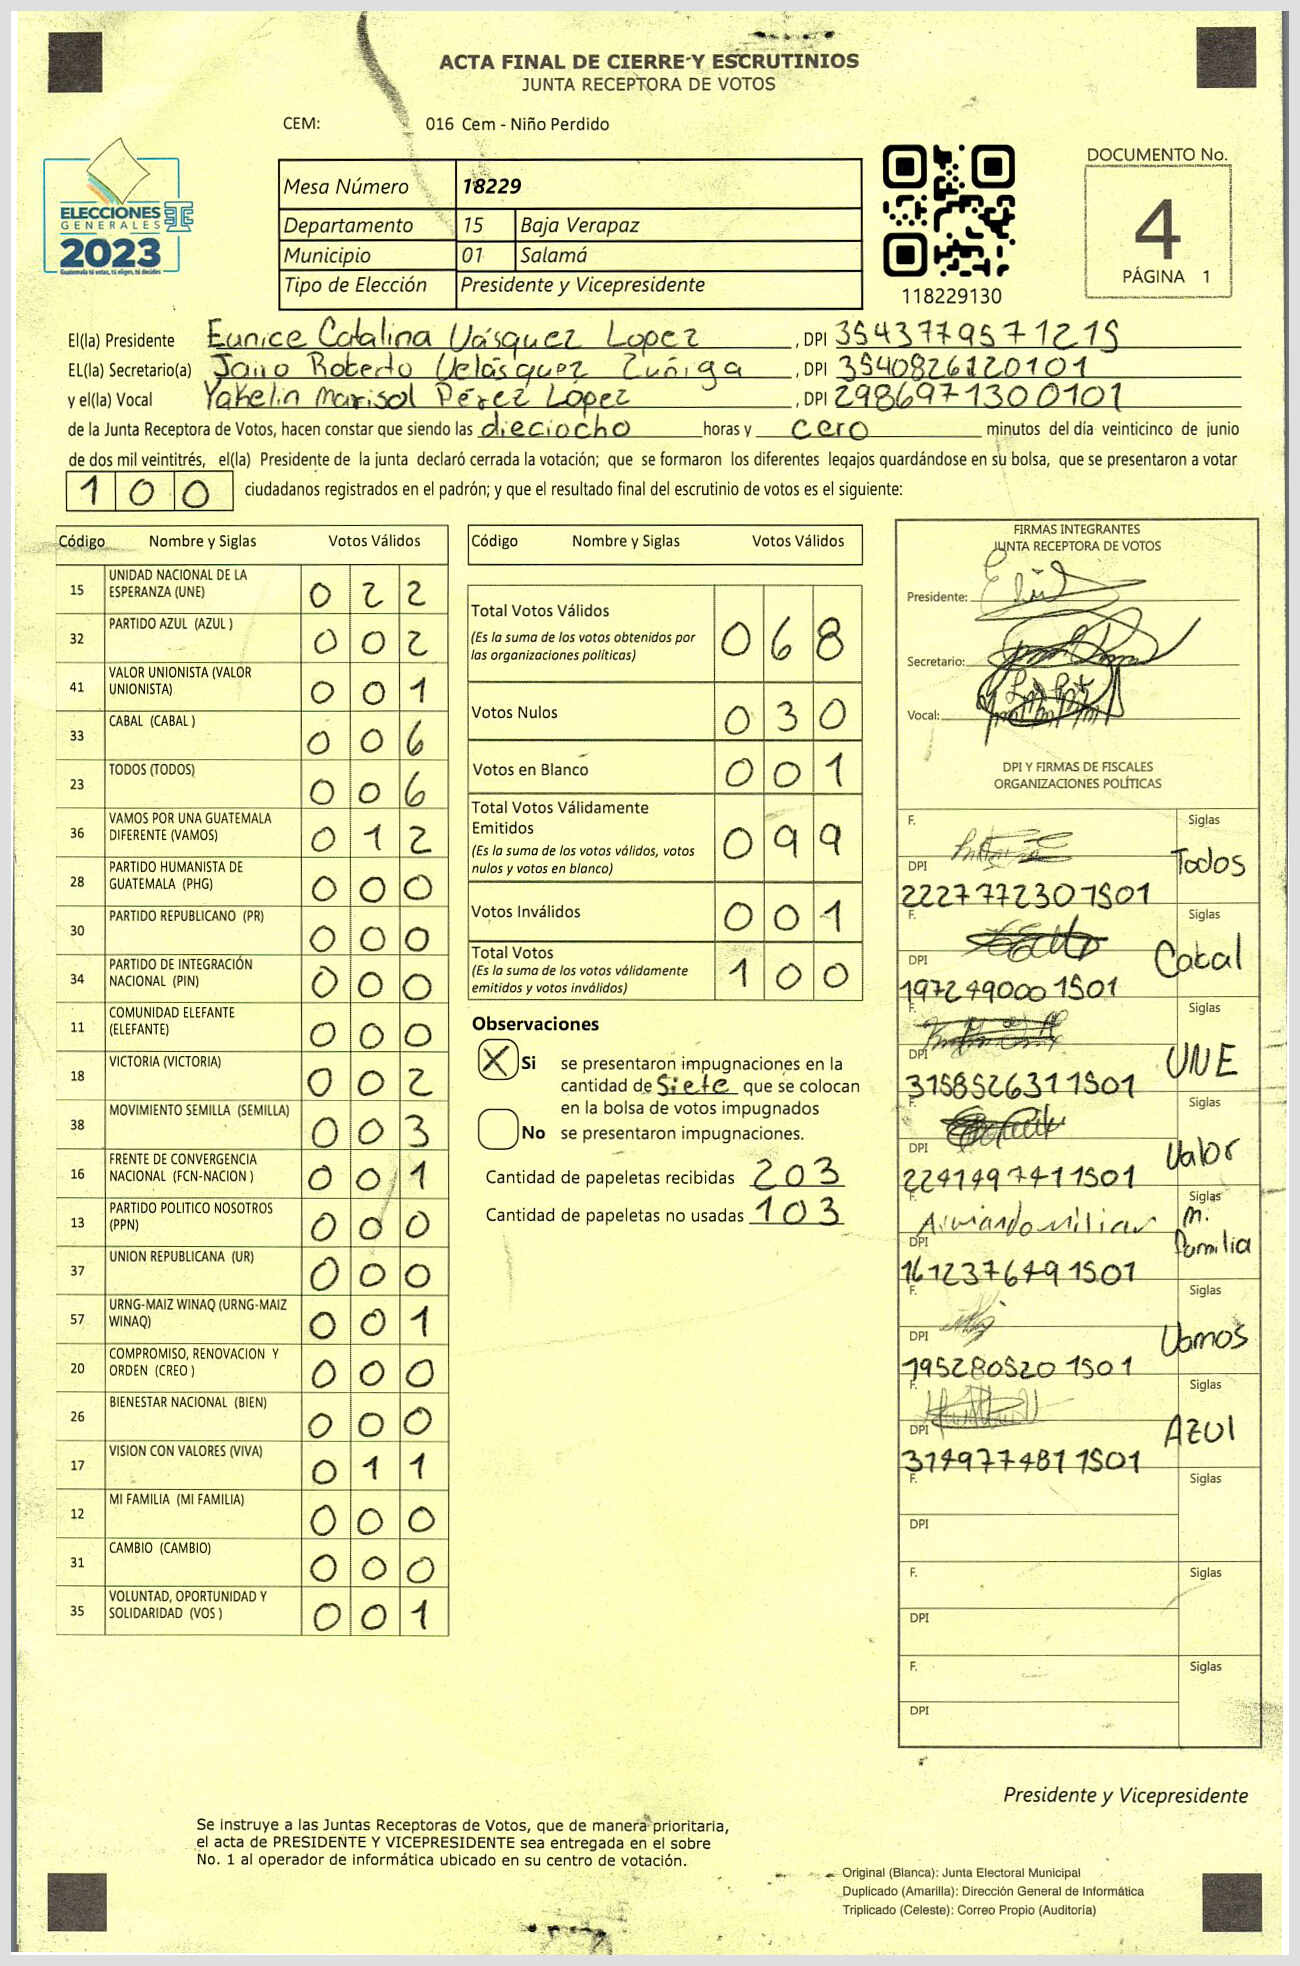 ACTA FINAL DE CIERRE Y ESCRUTINIOS
JUNTA RECEPTORA DE VOTOS
CEM: 016 Cem - Niño Perdido
ELECCIONES
GENERALES
2023
Guatemala tú votas, tú eliges, tú decides
Mesa Número 18229
Departamento 15 Baja Verapaz
Municipio 01 Salamá
Tipo de Elección Presidente y Vicepresidente
118229130
DOCUMENTO No.
4
PÁGINA 1
El(la) Presidente Eunice Catalina Vásquez Lopez , DPI 3543779571215
EL(la) Secretario(a) Jairo Roberto Velásquez Zuñiga , DPI 3540826120101
y el(la) Vocal Yakelin Marisol Pérez López , DPI 2986971300101
de la Junta Receptora de Votos, hacen constar que siendo las dieciocho horas y cero minutos del día veinticinco de junio
de dos mil veintitrés, el(la) Presidente de la junta declaró cerrada la votación; que se formaron los diferentes legajos quardándose en su bolsa, que se presentaron a votar
100 ciudadanos registrados en el padrón; y que el resultado final del escrutinio de votos es el siguiente:
Código Nombre y Siglas Votos Válidos
15 UNIDAD NACIONAL DE LA ESPERANZA (UNE) 022
32 PARTIDO AZUL (AZUL ) 002
41 VALOR UNIONISTA (VALOR UNIONISTA) 001
33 CABAL (CABAL ) 006
23 TODOS (TODOS) 006
36 VAMOS POR UNA GUATEMALA DIFERENTE (VAMOS) 012
28 PARTIDO HUMANISTA DE GUATEMALA (PHG) 000
30 PARTIDO REPUBLICANO (PR) 000
34 PARTIDO DE INTEGRACIÓN NACIONAL (PIN) 000
11 COMUNIDAD ELEFANTE (ELEFANTE) 000
18 VICTORIA (VICTORIA) 002
38 MOVIMIENTO SEMILLA (SEMILLA) 003
16 FRENTE DE CONVERGENCIA NACIONAL (FCN-NACION ) 001
13 PARTIDO POLITICO NOSOTROS (PPN) 000
37 UNION REPUBLICANA (UR) 000
57 URNG-MAIZ WINAQ (URNG-MAIZ WINAQ) 001
20 COMPROMISO, RENOVACION Y ORDEN (CREO ) 000
26 BIENESTAR NACIONAL (BIEN) 000
17 VISION CON VALORES (VIVA) 011
12 MI FAMILIA (MI FAMILIA) 000
31 CAMBIO (CAMBIO) 000
35 VOLUNTAD, OPORTUNIDAD Y SOLIDARIDAD (VOS ) 001
Código Nombre y Siglas Votos Válidos
Total Votos Válidos 068
(Es la suma de los votos obtenidos por
las organizaciones políticas)
Votos Nulos 030
Votos en Blanco 001
Total Votos Válidamente
Emitidos 099
(Es la suma de los votos válidos, votos
nulos y votos en blanco)
Votos Inválidos 001
Total Votos 100
(Es la suma de los votos válidamente
emitidos y votos inválidos)
Observaciones
X Si se presentaron impugnaciones en la
cantidad de Siete que se colocan
en la bolsa de votos impugnados
No se presentaron impugnaciones.
Cantidad de papeletas recibidas 203
Cantidad de papeletas no usadas 103
FIRMAS INTEGRANTES
JUNTA RECEPTORA DE VOTOS
Presidente:
Secretario:
Vocal:
DPI Y FIRMAS DE FISCALES
ORGANIZACIONES POLÍTICAS
F. Siglas
Todos
DPI
2227772301501
F. Siglas
Cabal
DPI
1972490001501
F. Siglas
UNE
DPI
3158526311501
F. Siglas
Valor
DPI
2241497411501
F. Armando Milian Siglas
M. Familia
DPI
1612376491501
F. Siglas
Vamos
DPI
1952805201501
F. Siglas
AZUl
DPI
3149774811501
F. Siglas
DPI
F. Siglas
DPI
F. Siglas
DPI
Presidente y Vicepresidente
Se instruye a las Juntas Receptoras de Votos, que de manera prioritaria,
el acta de PRESIDENTE Y VICEPRESIDENTE sea entregada en el sobre
No. 1 al operador de informática ubicado en su centro de votación.
Original (Blanca): Junta Electoral Municipal
Duplicado (Amarilla): Dirección General de Informática
Triplicado (Celeste): Correo Propio (Auditoría)